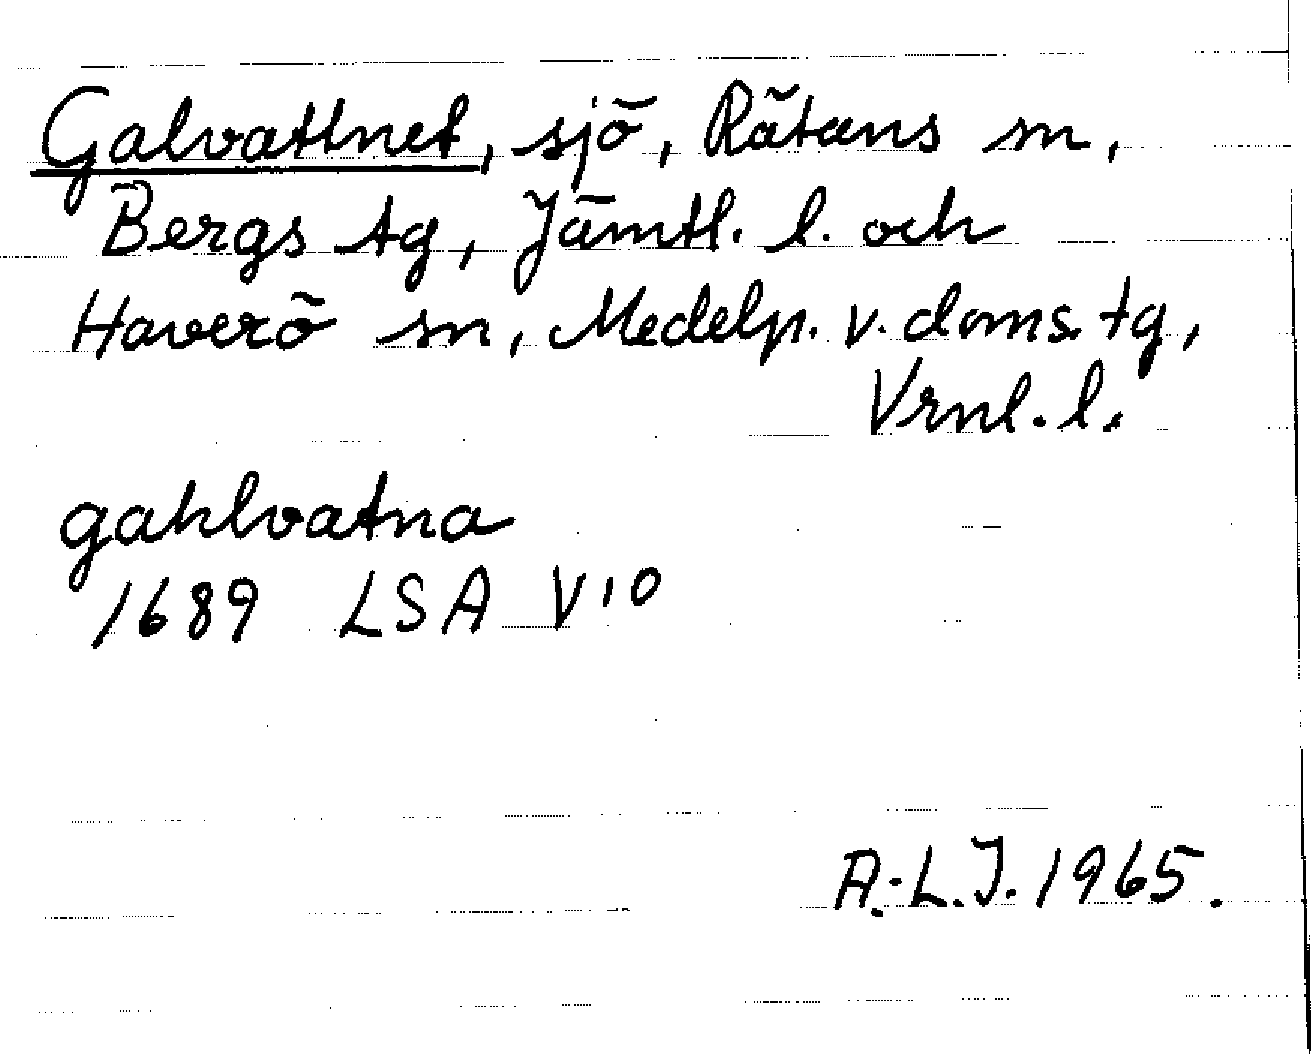 Galvattnet, sjö, Rätans sn,
Bergs tg, Jämtl. l. och
Haverö sn, Medelp. v. doms. tg,
Vrnl. l.
gahlvatna
1689 LSA V10
A.-L.J. 1965.